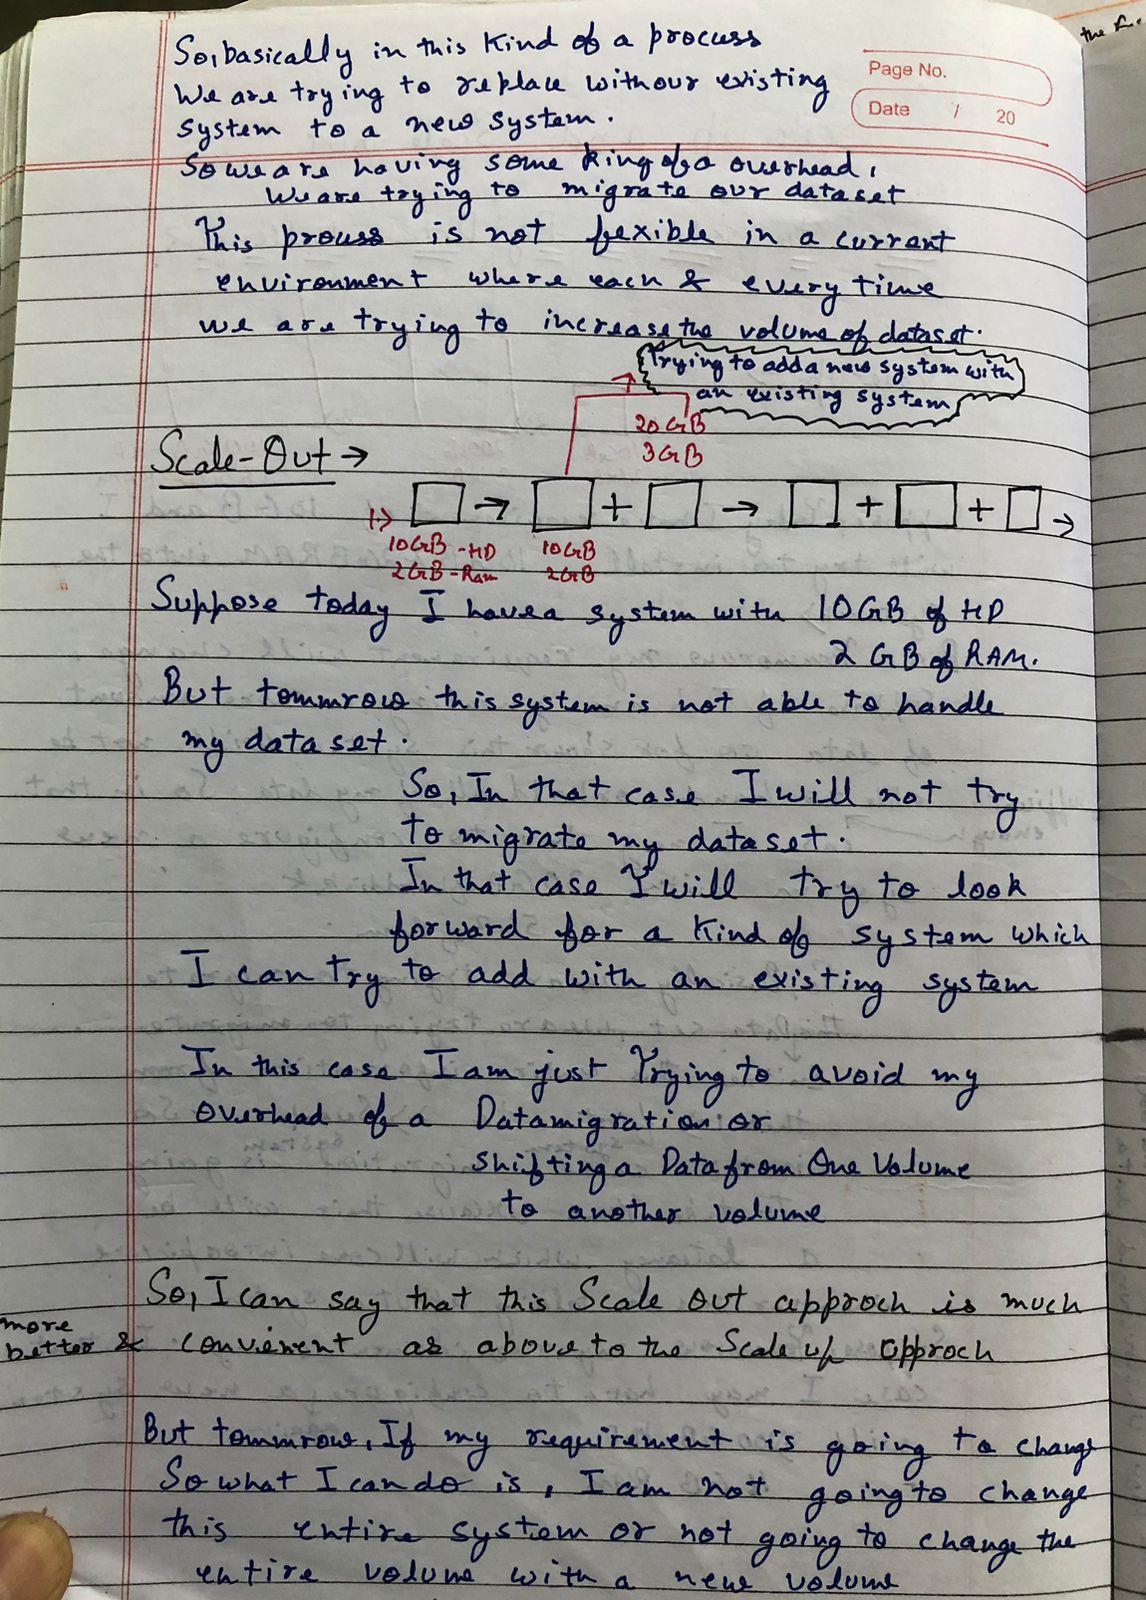 So, basically in this kind of a process
We are trying to replace with our existing
system to a new system.
So we are having some king of a overhead,
We are trying to migrate our dataset
This process is not fexible in a current
environment where each & every time
we are trying to increase the volume of dataset.
Page No.
Date / 20
the
Trying to add a new system with
an existing system
20 GB
3 GB
Scale-Out →
1> → + → + + →
10GB - HD 10GB
2GB - Ram 2GB
Suppose today I have a system with 10GB of HD
2 GB of RAM.
But tommrow this system is not able to handle
my data set.
So, In that case I will not try
to migrate my dataset.
In that case I will try to look
forward for a kind of system which
I can try to add with an existing system
In this case I am just Trying to avoid my
overhead of a Datamigration or
Shifting a Data from One Volume
to another volume
So, I can say that this Scale out approch is much
more
better & convienent as above to the Scale up approch
But tommrow, If my requirement is going to change
So what I can do is, I am not going to change
this entire system or not going to change the
entire volume with a new volume